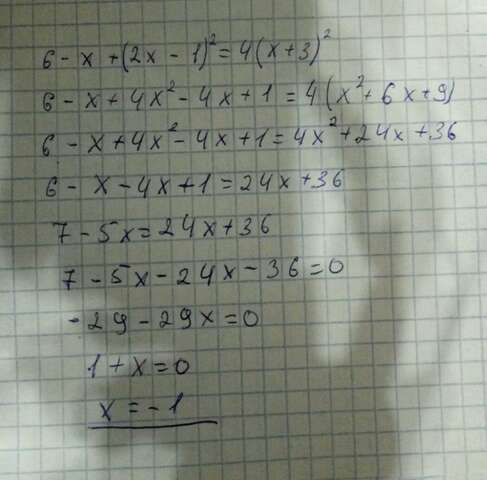 6 - x + (2x - 1)² = 4(x + 3)²
6 - x + 4x² - 4x + 1 = 4(x² + 6x + 9)
6 - x + 4x² - 4x + 1 = 4x² + 24x + 36
6 - x - 4x + 1 = 24x + 36
7 - 5x = 24x + 36
7 - 5x - 24x - 36 = 0
-29 - 29x = 0
1 + x = 0
x = -1